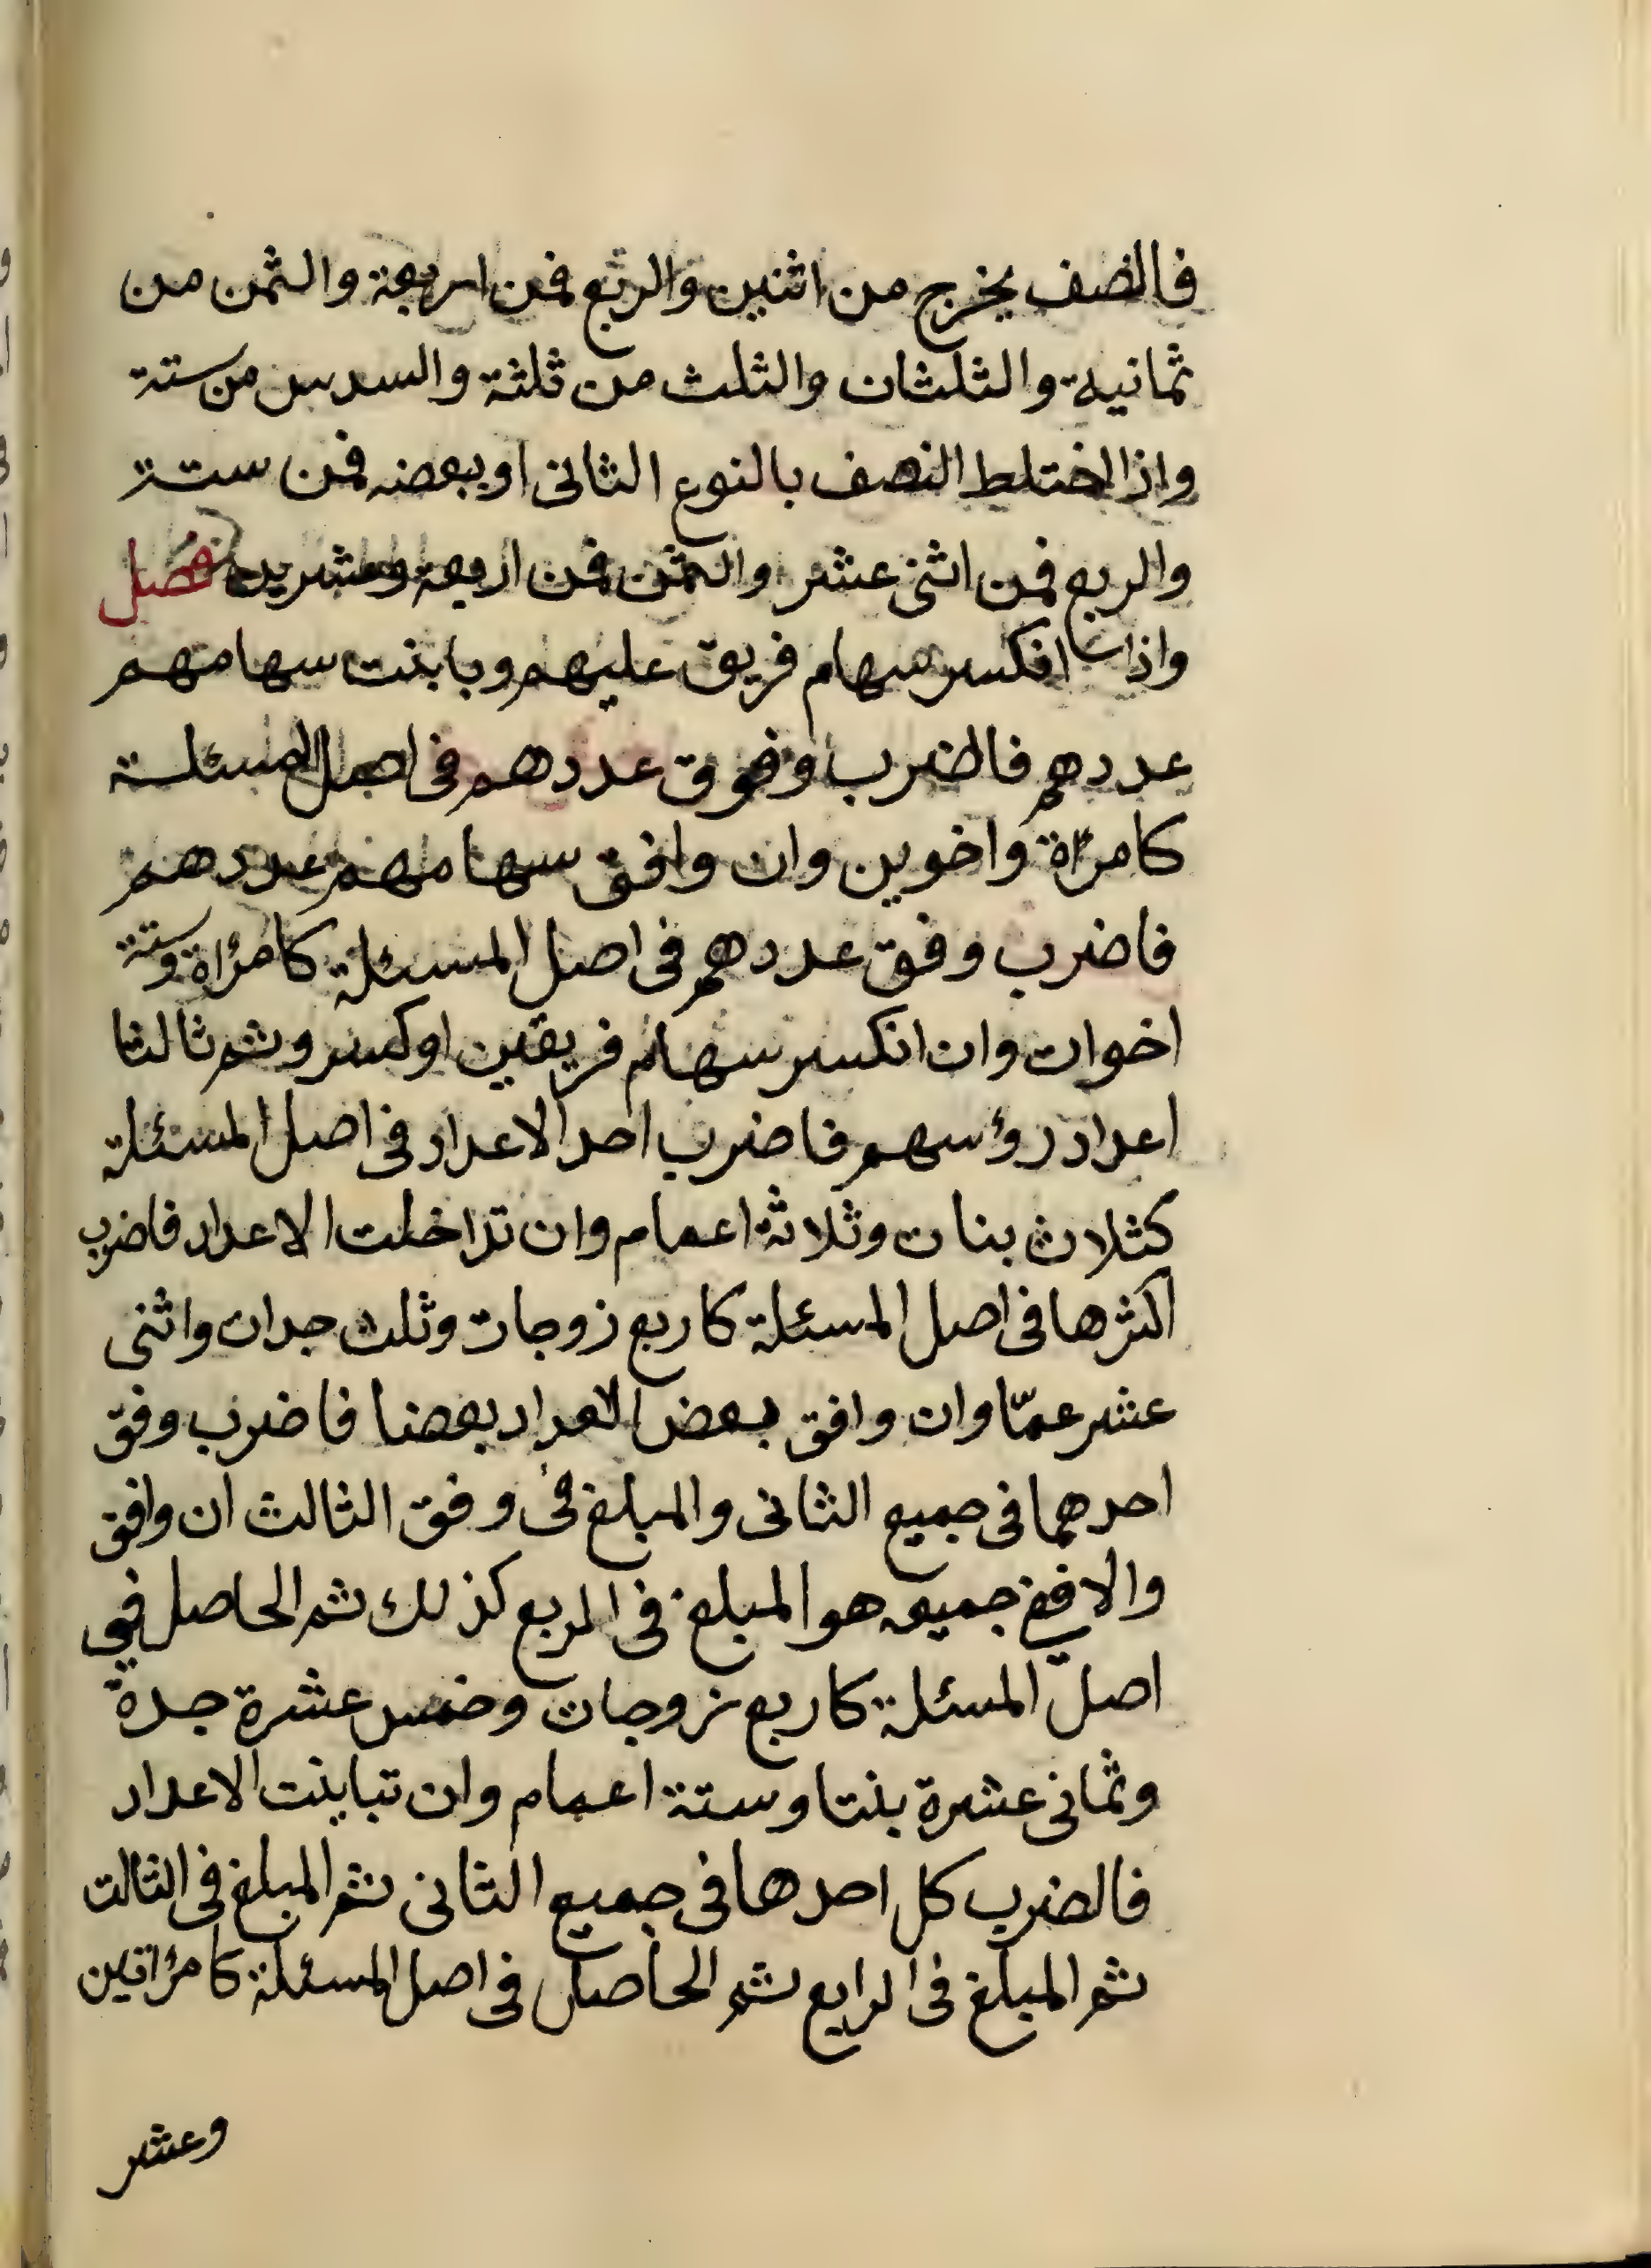 فالنصف يخرج من اثنين والربع فمن اربعة والثمن من
ثمانية والثلثان والثلث من ثلثة والسدس من ستة
واذا اختلط النصف بالنوع الثانى او ببعضه فمن ستة
والربع فمن اثنى عشر والثمن فمن اربعة وعشرين فصل
واذا انكسر سهام فريق عليهم وباينت سهامهم
عددهم فالضرب وفوق عددهم فى اصل المسئلة
كامرأة واخوين وان وافق سهامهم عددهم
فاضرب وفق عددهم فى اصل المسئلة كامرأة وستة
اخوان وان انكسر سهام فريقين او كسر وثم ثالثا
اعداد رؤسهم فاضرب احد الاعداد فى اصل المسئلة
كثلاث بنات وثلاثة اعمام وان تداخلت الاعداد فاضرب
اكثرها فى اصل المسئلة كاربع زوجات وثلث جدات واثنى
عشر عمّا وان وافق بعض الاعداد بعضا فاضرب وفق
احدهما فى جميع الثانى والمبلغ فى وفق الثالث ان وافق
والا ففى جميعه هو المبلغ فى الربع كذلك ثم الحاصل فى
اصل المسئلة كاربع زوجات وخمس عشرة جدة
وثمانى عشرة بنتا وستة اعمام وان تباينت الاعداد
فالضرب كل احدها فى جميع الثانى ثم المبلغ فى الثالث
ثم المبلغ فى الرابع ثم الحاصل فى اصل المسئلة كامرأتين
وعشر